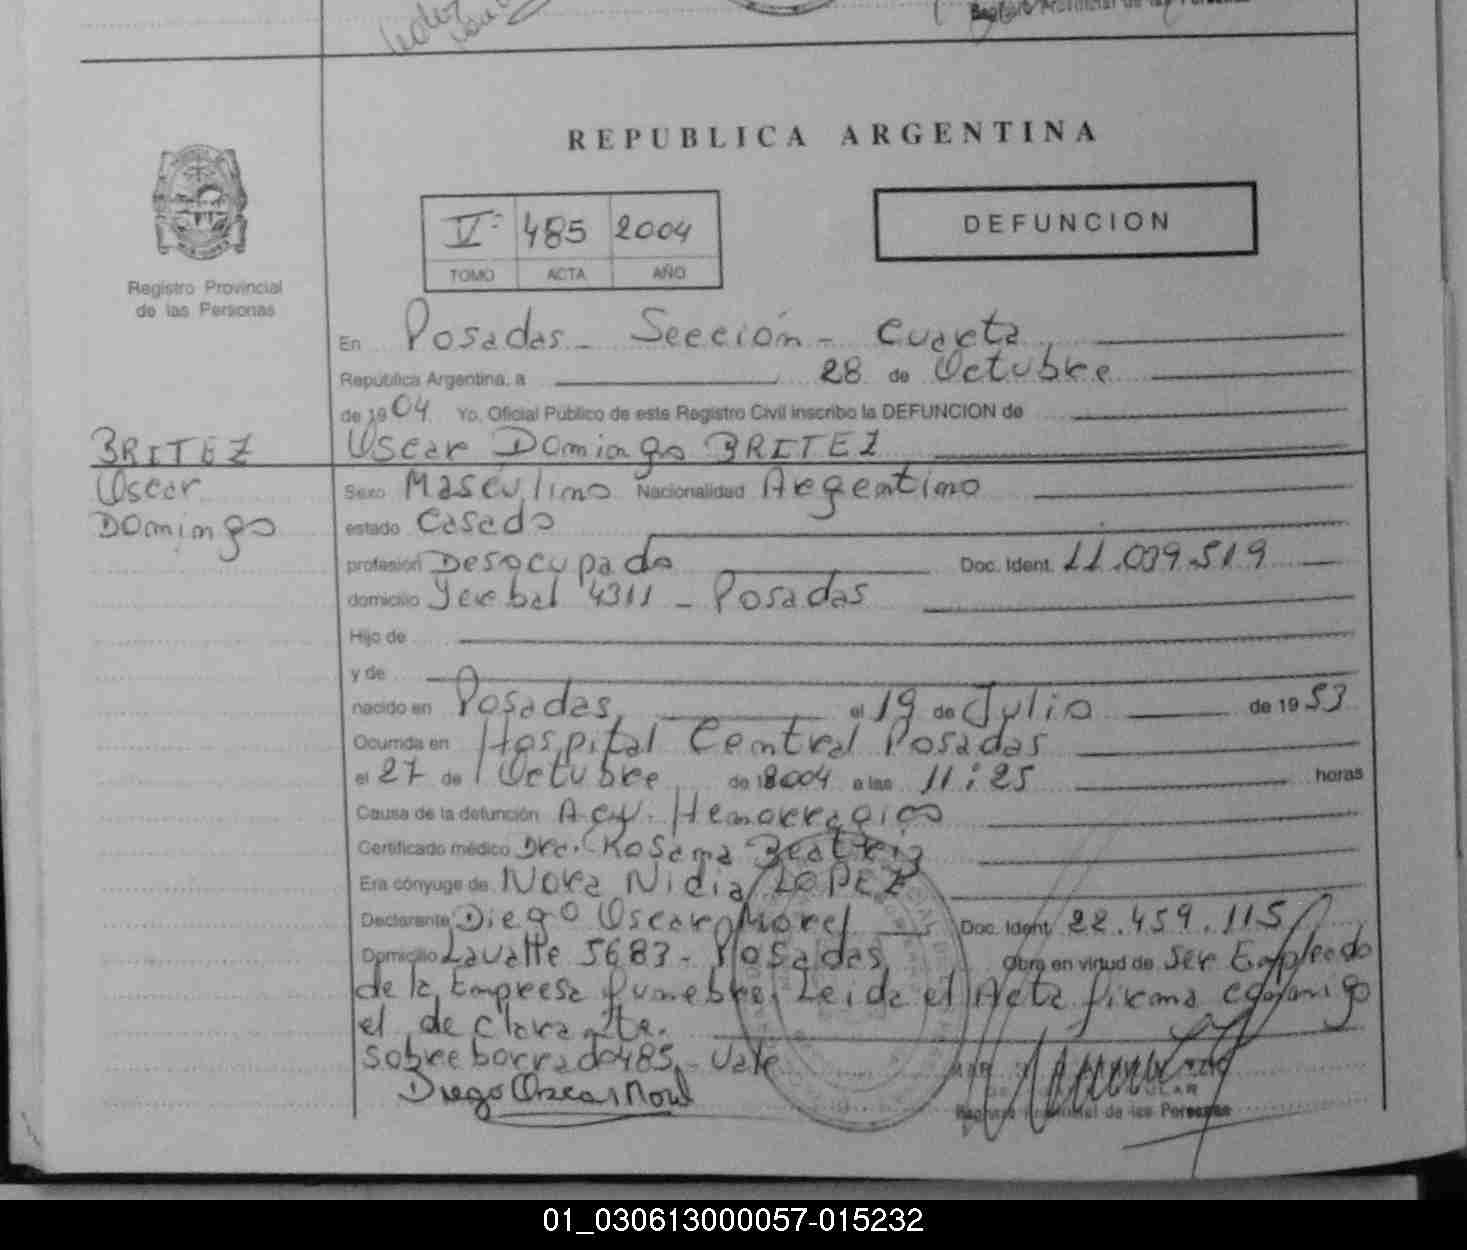 Registro Provincial de las Personas
REPUBLICA ARGENTINA
V° 485 2004
TOMO ACTA AÑO
DEFUNCION
Registro Provincial
de las Personas
En Posadas - Sección - Cuarta
República Argentina, a 28 de Octubre
de 1904 Yo, Oficial Público de este Registro Civil inscribo la DEFUNCION de
BRITEZ
Oscar
Domingo
Oscar Domingo BRITEZ
Sexo Masculino Nacionalidad Argentino
estado Casado
profesión Desocupado Doc. Ident. 11.039.519
domicilio Yerbal 4311 - Posadas
Hijo de
y de
nacido en Posadas el 19 de Julio de 1953
Ocurrida en Hospital Central Posadas
el 27 de Octubre de 2004 a las 11:25 horas
Causa de la defunción Acv. Hemorragico
Certificado médico Dra. Rosana Beatriz
Era cónyuge de Nora Nidia LOPEZ
Declarante Diego Oscar Morel Doc. Ident. 22.459.115
Domicilio Lavalle 5683 - Posadas Obra en virtud de Ser Empleado
de la Empresa funebre. Leida el Acta firma conmigo
el declarante.
Sobreborrado 485. Vale
Diego Oscar Morel
Registro Provincial de las Personas
01_030613000057-015232